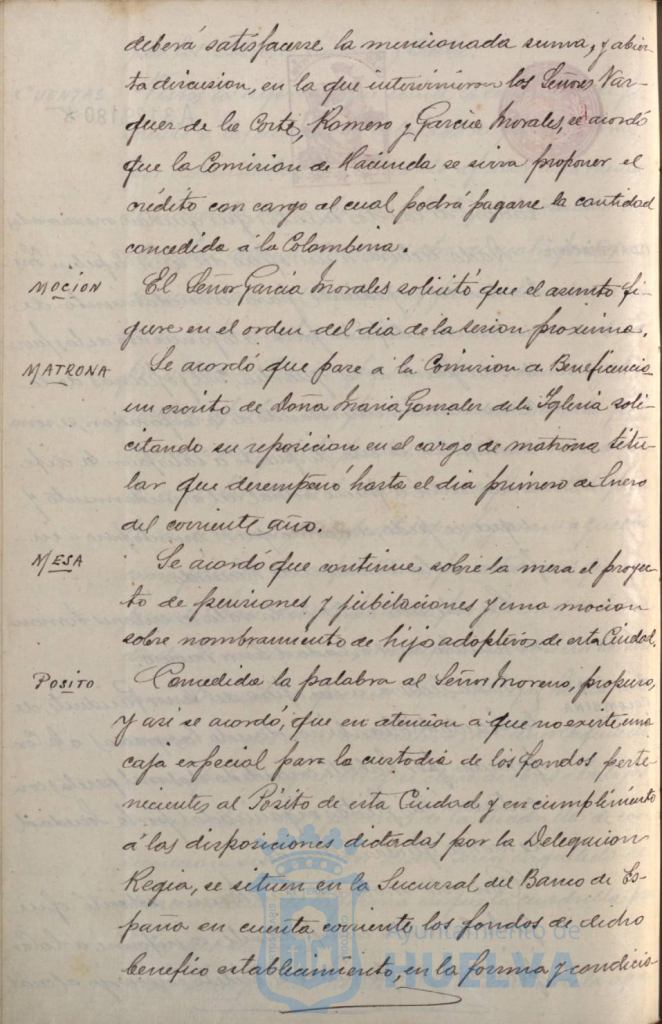 deberá satisfacerse la mencionada suma, y abier-
ta discusion, en la que intervinieron los Señores Vaz-
quez de la Corte, Romero y García Morales, se acordó
que la Comision de Hacienda se sirva proponer el
crédito con cargo al cual podrá pagarse la cantidad
concedida á la Colombina.
MOCION
El Señor García Morales solicitó que el asunto fi-
gure en el orden del dia de la sesion proxima.
MATRONA
Se acordó que pase á la Comision de Beneficencia
un escrito de Doña Maria Gonzalez de la Iglesia soli-
citando su reposicion en el cargo de matrona titu-
lar que desempeñó hasta el dia primero de Enero
del corriente año.
MESA
Se acordó que continue sobre la mesa el proyec-
to de pensiones y jubilaciones y una mocion
sobre nombramiento de hijo adoptivo de esta Ciudad.
POSITO
Concedida la palabra al Señor Moreno, propuso,
y asi se acordó, que en atencion á que no existe una
caja especial para la custodia de los fondos perte-
necientes al Pósito de esta Ciudad y en cumplimiento
á las disposiciones dictadas por la Delegacion
Regia, se situen en la Sucursal del Banco de Es-
paña en cuenta corriente los fondos de dicho
benefico establecimiento, en la forma y condicio-
Ayuntamiento de
HUELVA